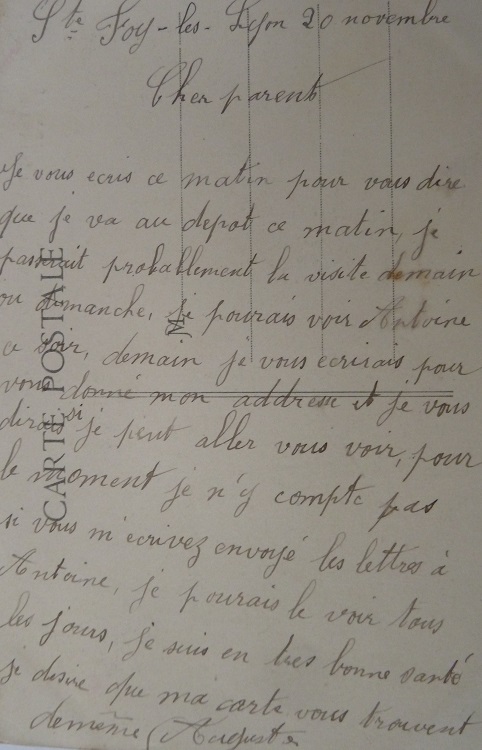 Ste Foy-les-Lyon 20 novembre
Cher parent
Je vous ecris ce matin pour vous dire
que je va au depot ce matin, je
passerait probablement la visite demain
ou dimanche, je pourais voir Antoine
ce soir, demain je vous ecrirais pour
vous donné mon addresse et je vous
dirais si je peut aller vous voir, pour
le moment je n'y compte pas
si vous m'ecrivez envoyé les lettres à
Antoine, je pourais le voir tous
les jours, je suis en tres bonne santé
je desire que ma carte vous trouvent
demême Auguste
CARTE POSTALE
M